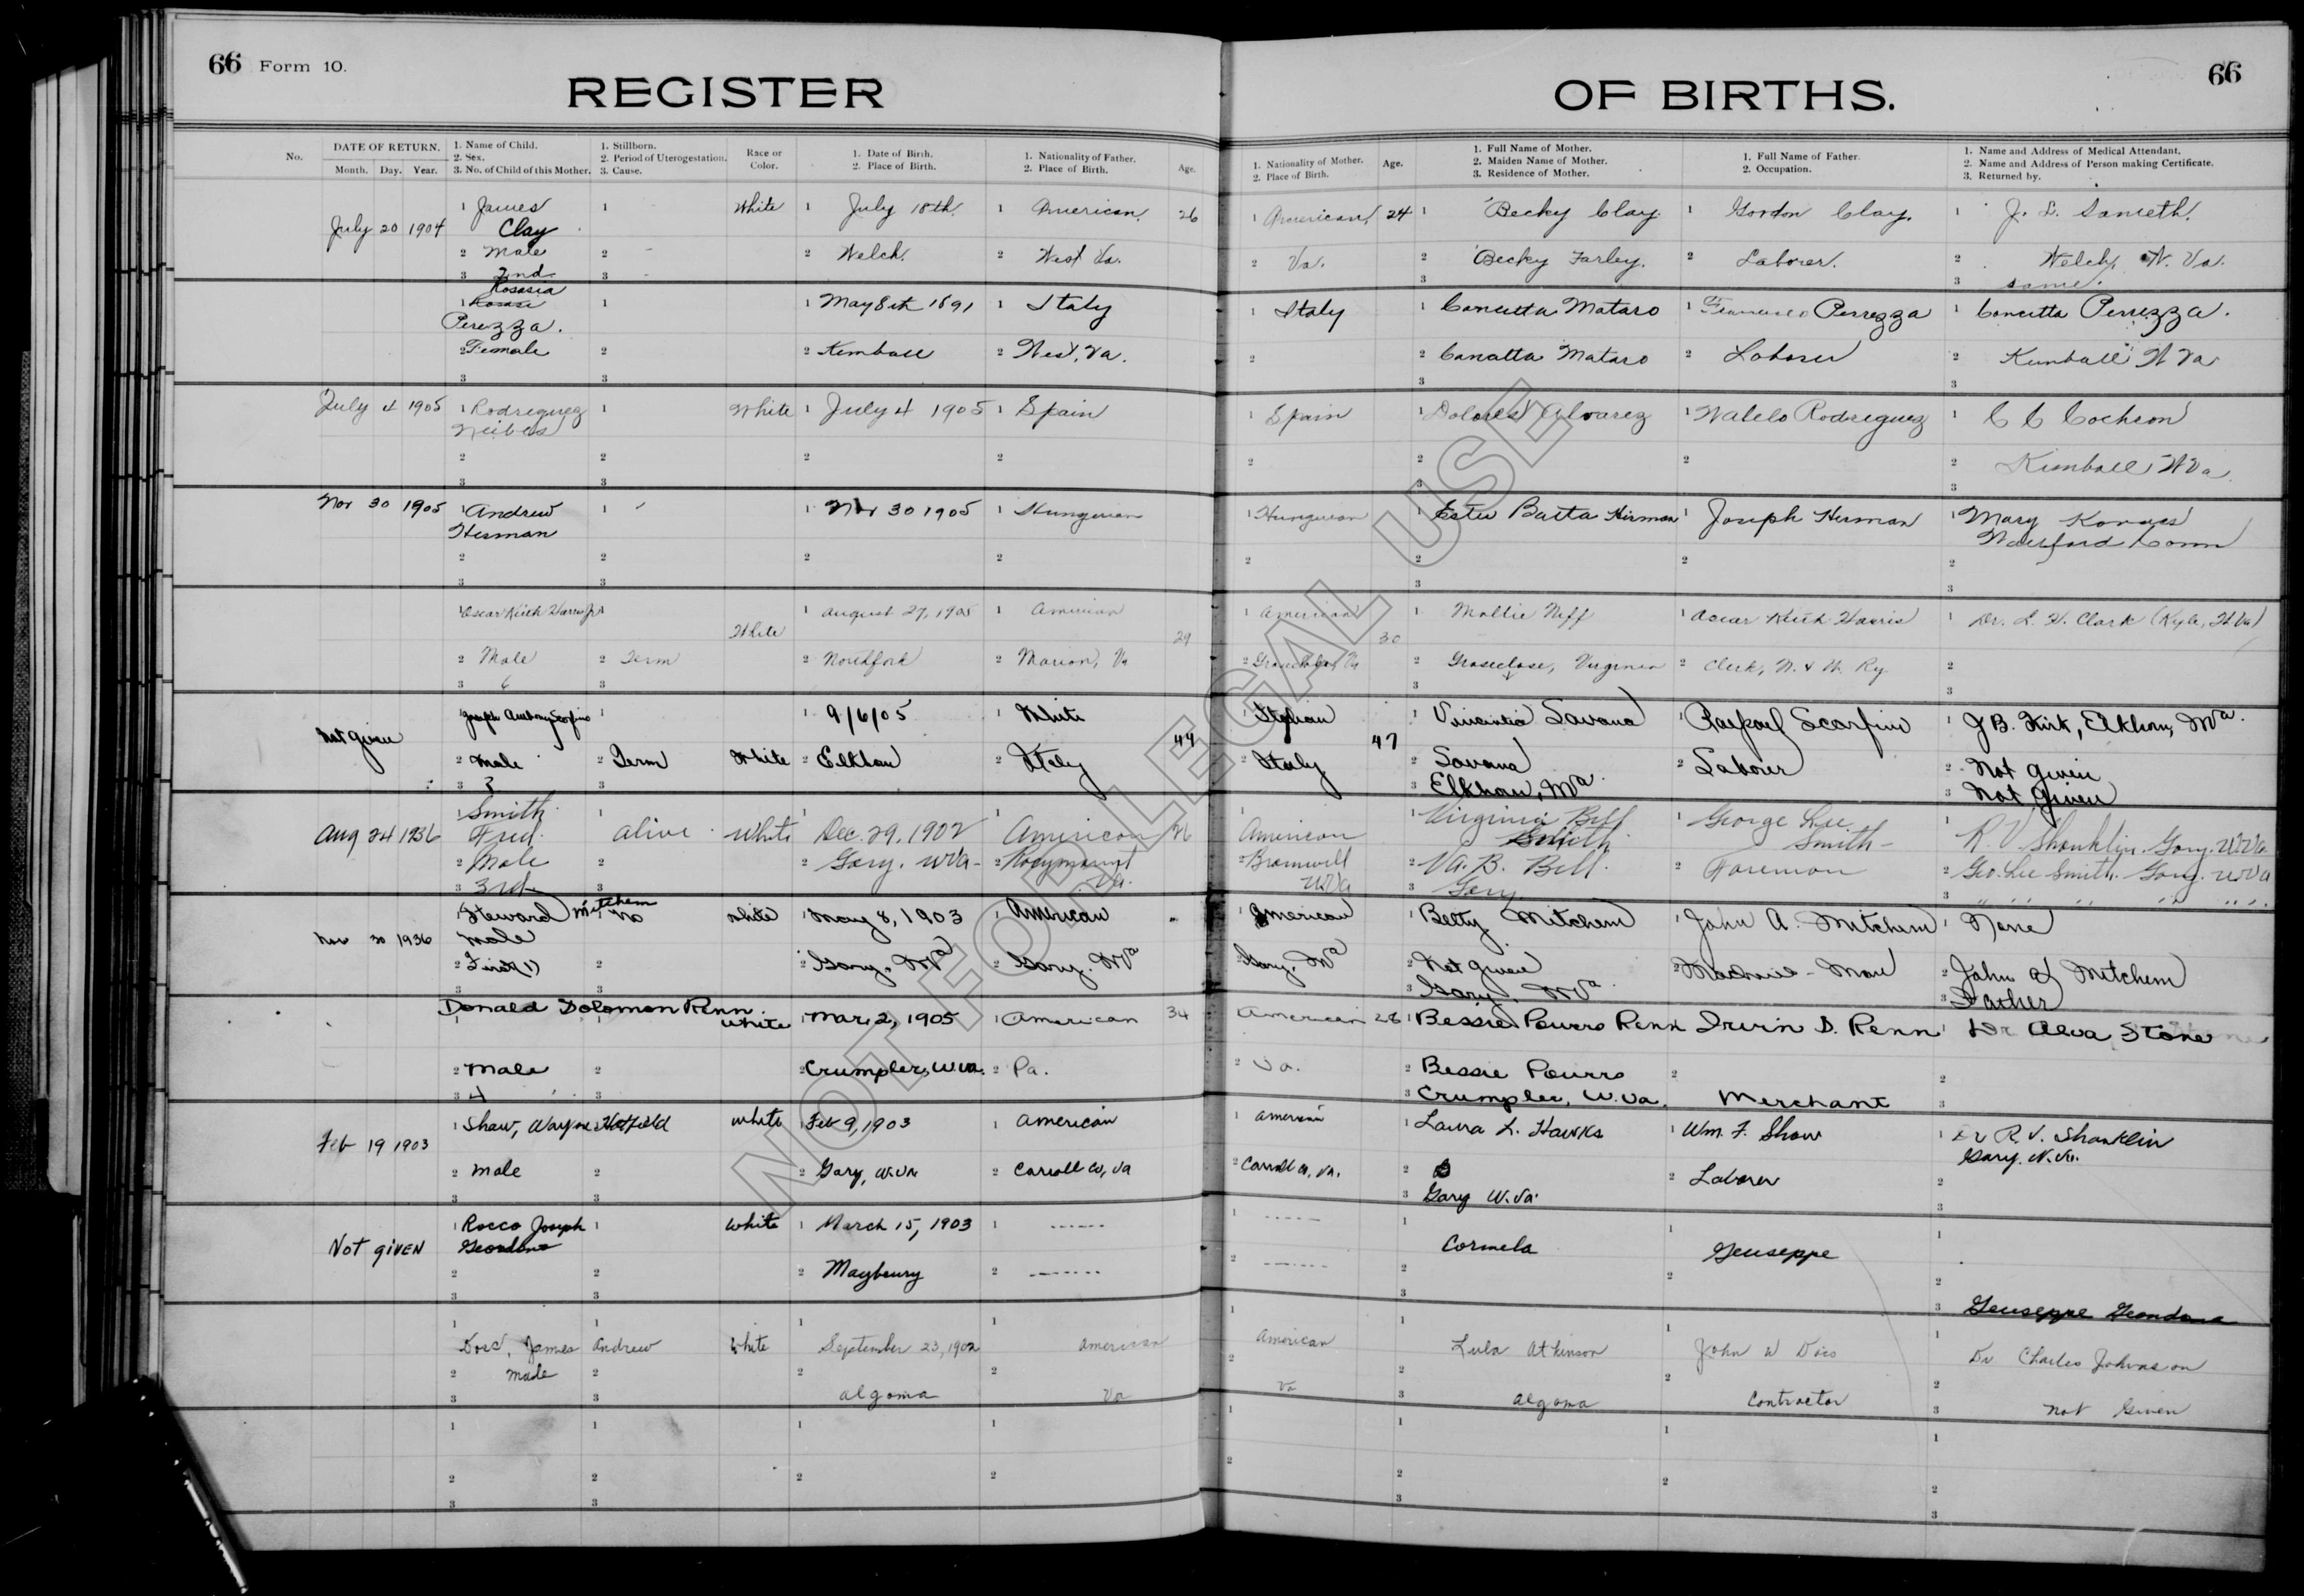 66 Form 10.
REGISTER OF BIRTHS.
66
No.
DATE OF RETURN.
Month. Day. Year.
1. Name of Child.
2. Sex.
3. No. of Child of this Mother.
1. Stillborn.
2. Period of Uterogestation.
3. Cause.
Race or
Color.
1. Date of Birth.
2. Place of Birth.
1. Nationality of Father.
2. Place of Birth.
Age.
1. Nationality of Mother.
2. Place of Birth.
Age.
1. Full Name of Mother.
2. Maiden Name of Mother.
3. Residence of Mother.
1. Full Name of Father.
2. Occupation.
1. Name and Address of Medical Attendant.
2. Name and Address of Person making Certificate.
3. Returned by.
July 20 1904
1 James
Clay
2 Male
3 2nd
White
1 July 18th.
2 Welch.
1 American.
2 West Va.
26
1 American
2 Va.
24
1 Becky Clay.
2 Becky Farley.
3
1 Gordon Clay.
2 Laborer.
1 J. L. Sameth.
2 Welch, W. Va.
3 same.
Rosasia
Perezza.
2 Female
3
1 May 8th 1891
2 Kimball
1 Italy
2 West. Va.
1 Italy
2
1 Concetta Mataro
2 Canatta Mataro
3
Perrezza
2 Laborer
1 Concetta Perrezza.
2 Kimball W Va
3
July 4 1905
1 Rodriguez
2
3
White
1 July 4 1905
2
1 Spain
2
1 Spain
2
1 Dolores Alvarez
2
3
1 Rodriguez
2
1 C C Cochron
2 Kimball W Va
3
Nov 30 1905
1 Andrew
Herman
2
3
1 Nov 30 1905
2
1 Hungarian
2
1 Hungarian
2
1 Ester Barta Herman
2
3
1 Joseph Herman
2
1 Mary Kovacs
Conn
2
3
1 Oscar Keith Harris Jr
2 Male
3 6
2 Term
White
1 August 27, 1905
2 Northfork
1 American
2 Marion, Va
29
1 American
2 Groseclose, Va
30
1 Mollie Neff
2 Groseclose, Virginia
3
1 Oscar Keith Harris
2 Clerk, N. & W. Ry.
1 Dr. L. H. Clark (Kyle, W Va)
2
3
Not given
1 Joseph Anthony Scorfino
2 Male
3 3
2 Term
White
1 9/6/05
2 Elkhorn
1 White
2 Italy
44
1 Italian
2 Italy
47
1 Savana
2 Savana
3 Elkhorn, W Va.
1 Scarfino
2 Laborer
1 J B. Kirk, Elkhorn, W Va.
2 Not given
3 Not given
Aug 24 1936
1 Smith
Fred.
2 Male
3 3rd
alive
White
Dec. 29, 1902
2 Gary. W Va
American
2 Rocymount
Va.
26
American
2 Bramwell
W Va
1 Virginia Bell
Smith
2 Va. B. Bell.
3 Gary
1 George Lee
Smith
2 Foreman
R. V. Shanklin. Gary. W Va
2 Geo. Lee Smith. Gary. W Va
3 " " " " "
Nov 30 1936
1 Steward Mitchem
Male
2 First (1)
1 No
White
1 May 8, 1903
2 Gary. W Va
1 American
2 Gary. W Va
1 American
2 Gary. W Va
1 Betty Mitchem
2 Not given
3 Gary. W Va.
1 John A. Mitchem
2 Machine-Man
1 None
2 John A Mitchem
3 Father
Donald Solomon Renn.
2 Male
3 4
White
1 Mar. 2, 1905
2 Crumpler, W. Va.
1 American
2 Pa.
34
American
2 Va.
28
1 Bessie Powers Renn
2 Bessie Powers
3 Crumpler, W. Va.
Irvin S. Renn
2 Merchant
1 Dr Alva Stone
2
3
Feb 19 1903
1 Shaw, Wayne Hatfield
2 Male
3
White
1 Feb 9, 1903
2 Gary, W. Va
1 American
2 Carroll Co, Va
1 American
2 Carroll Co, Va.
1 Laura L. Hawks
2
3 Gary W. Va.
1 Wm. F. Shaw
2 Laborer
1 Dr R. V. Shanklin
Gary. W. Va.
2
3
Not given
1 Rocco Joseph
Geordano
2
3
White
1 March 15, 1903
2 Maybeury
1 ------
2 -------
1 ------
2 ------
1 Cormela
2
3
1 Geuseppe
2
1
2
3 Geuseppe Geondana
1 Doss, James Andrew
2 Male
3
White
1 September 23, 1902
2 Algoma
1 American
2 Va
1 American
2 Va
1 Lula Atkinson
2
3 Algoma
1 John W Doss
2 Contractor
1 Dr Charles Johnson
2
3 Not Given
NOT FOR LEGAL USE